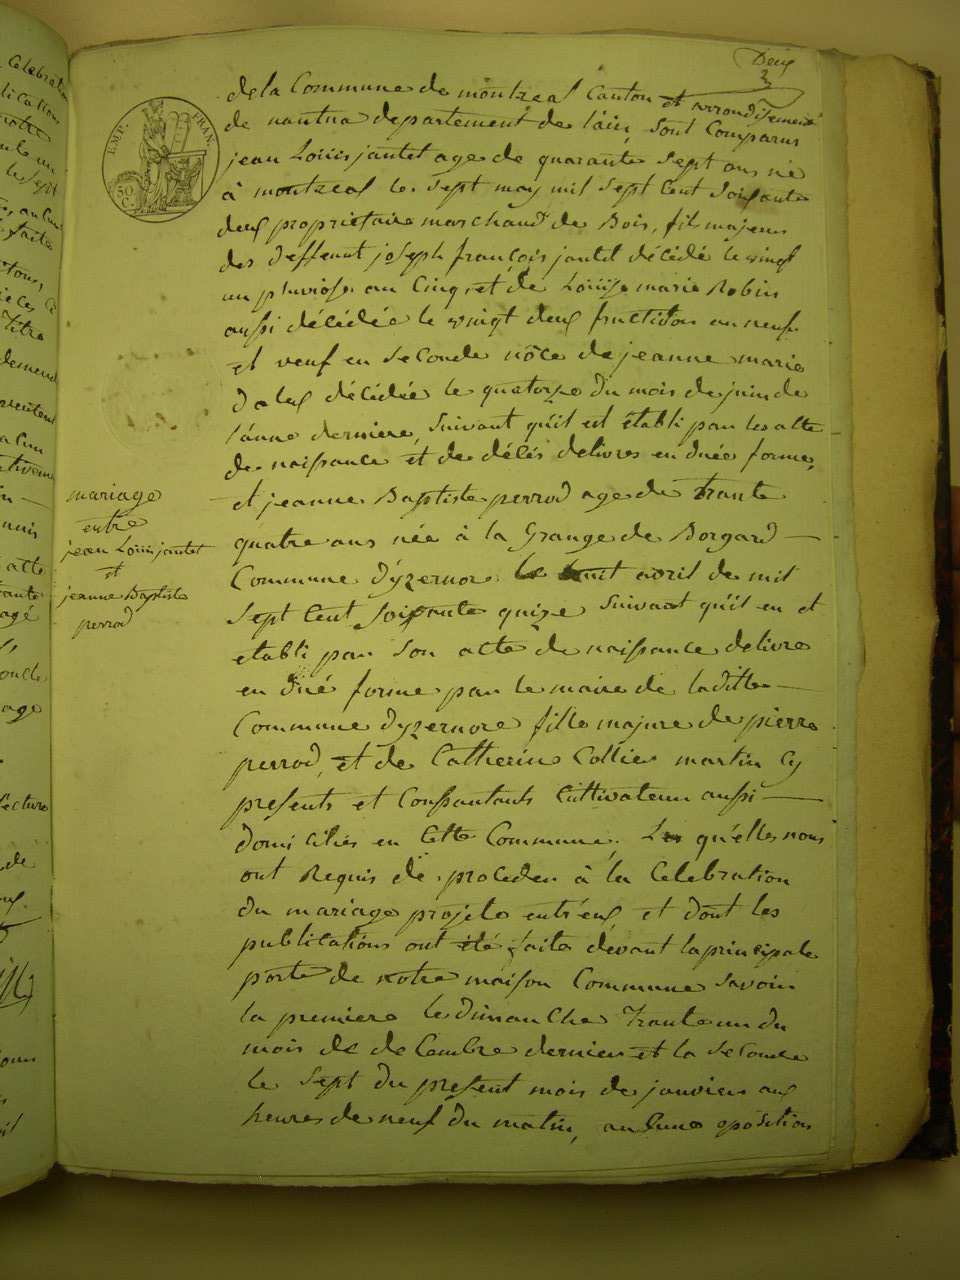 Deux
2
de la Commune de montreal Canton et arrondissement
de nantua departement de l'ain sont Comparus
jean Louis jantet age de quarante sept ans né
à montreal le sept may mil sept Cent soisante
deux proprietaire marchand de Bois, fil majeur
des deffunt joseph françois jantet décédé le vingt
un pluviose an Cinq et de Louise marie Robin
aussi décédée le vingt deux fructidor an neuf
et veuf en seconde nôce de jeanne marie
décédée le quatorze du mois de juin de
l'anne derniere, suivant qu'il est établi par les acte
de naissance et de décés delivres en duée forme,
et jeanne Baptiste perrod age de trante
quatre ans née à la Grange de Borgard
Commune d'yzernore le huit avril de mil
sept Cent soisante quinze suivant qu'il en et
etabli par son acte de naissance delivre
en dué forme par le maire de laditte
Commune d'yzernore fille majure de pierre
perrod, et de Catherine Collier martin Cy
presents et Consantants Cultivateur aussi
domiciliés en Cette Commune. Les qu'elles nous
ont Requis de proceder à la Celebration
du mariage projeté entr'eux et dont les
publications ont été faite devant la principale
porte de notre maison Commune savoir
la premiere le dimanche trante un du
mois de decembre dernier et la seconde
le sept du present mois de janvier aux
heures de neuf du matin, aucune oposition
mariage
entre
jean Louis jantet
et
jeanne Baptiste
perrod
EMP. FRAN.
50
C.